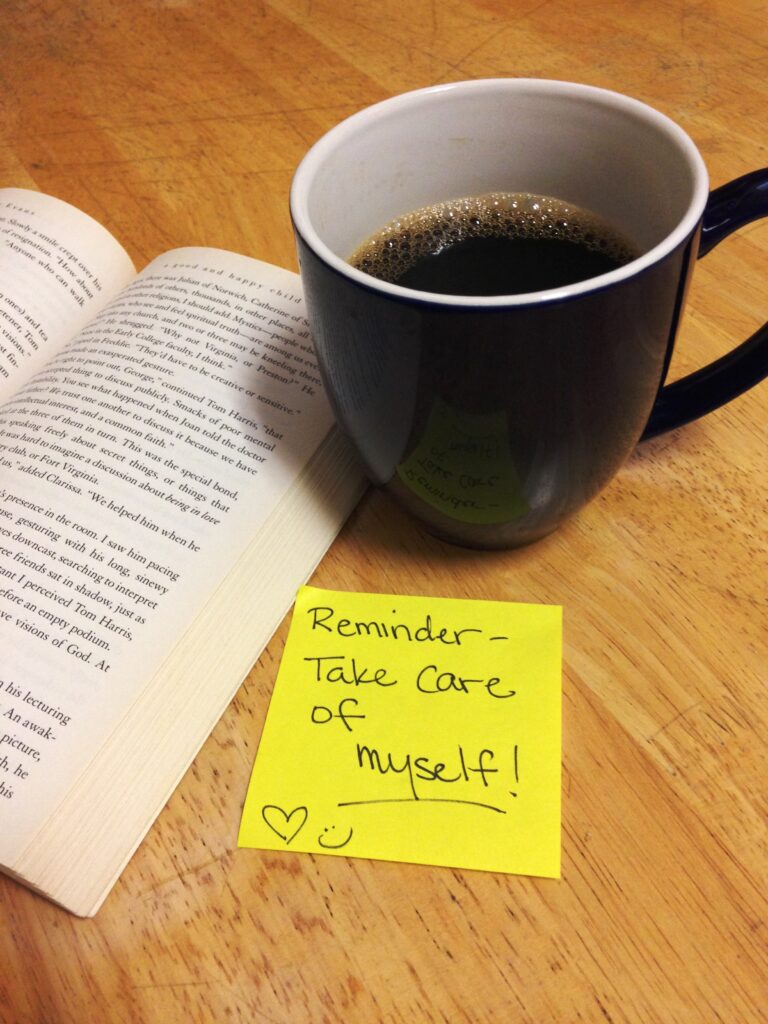 Evans
Slowly a smile crept over his
of resignation. "How about
"Anyone who can walk
ones) and tea
Tom
visions."
a good and happy child
there was Julian of Norwich, Catherine of
of others, thousands, in other places, all
other religions, I should add. Mystics—people
who see and feel spiritual truth—are among us
any church, and two or three may be kneeling there."
shrugged. "Why not Virginia, or Preston?" He
in the Early College faculty, I think."
in Freddie. "They'd have to be creative or sensitive."
made an exasperated gesture.
right to point out, George," continued Tom Harris, "that
accepted thing to discuss publicly. Smacks of poor mental
You see what happened when Joan told the doctor
We trust one another to discuss it because we have
interest, and a common faith."
at the three of them in turn. This was the special bond.
speaking freely about secret things, or things that
was hard to imagine a discussion about being in love
club, or Fort Virginia.
us," added Clarissa. "We helped him when he
presence in the room. I saw him pacing
gesturing with his long, sinewy
downcast, searching to interpret
friends sat in shadow, just as
I perceived Tom Harris,
before an empty podium.
visions of God. At
his lecturing
An awak-
picture,
he
his
Reminder-
Take care
of
myself!